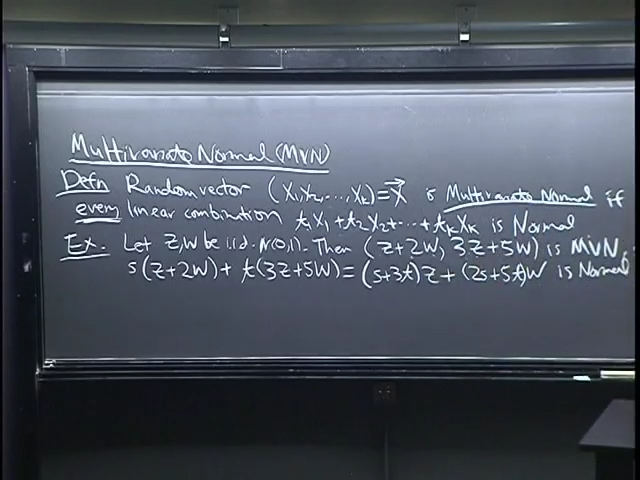 Multivariate Normal (MVN)
Defn Random vector (X₁,X₂,...,Xₖ)=X⃗ is Multivariate Normal if
every linear combination t₁X₁+t₂X₂+...+tₖXₖ is Normal
Ex. Let Z,W be i.i.d. N(0,1). Then (Z+2W, 3Z+5W) is MVN,
s(Z+2W)+t(3Z+5W)=(s+3t)Z+(2s+5t)W is Normal